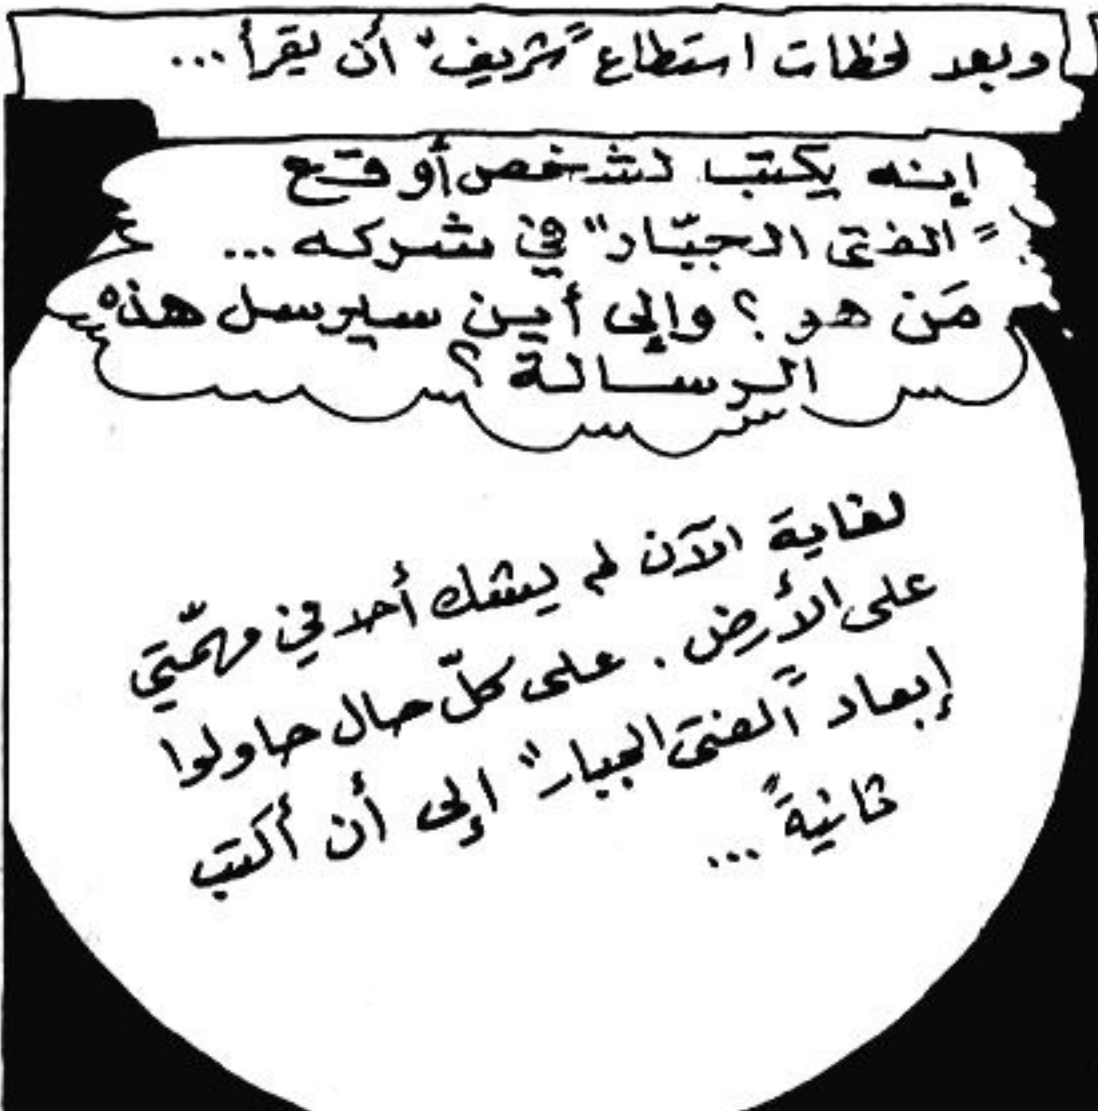 وبعد لحظات استطاع "شريف" أن يقرأ...
إنه يكتب لشخص أوقع
"الفتى الجبّار" في شركه...
مَن هو؟ وإلى أين سيرسل هذه
الرسالة؟
لغاية الآن لم يشك أحد في مهمّتي
على الأرض. على كلّ حال حاولوا
إبعاد "الفتى الجبار" إلى أن أكتب
ثانيةً...